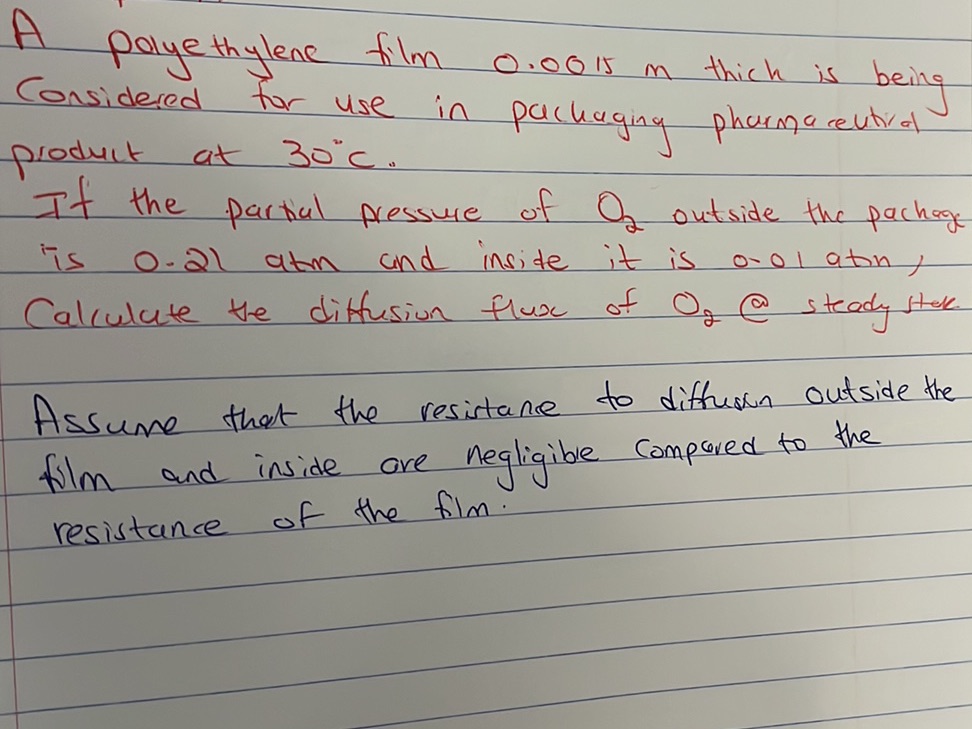 A polyethylene film 0.0015 m thick is being
Considered for use in packaging pharmaceutical
product at 30°c.
If the partial pressure of O₂ outside the package
is 0.21 atm and inside it is 0.01 atm,
Calculate the diffusion flux of O₂ @ steady state
Assume that the resistance to diffusion outside the
film and inside are negligible compared to the
resistance of the film.